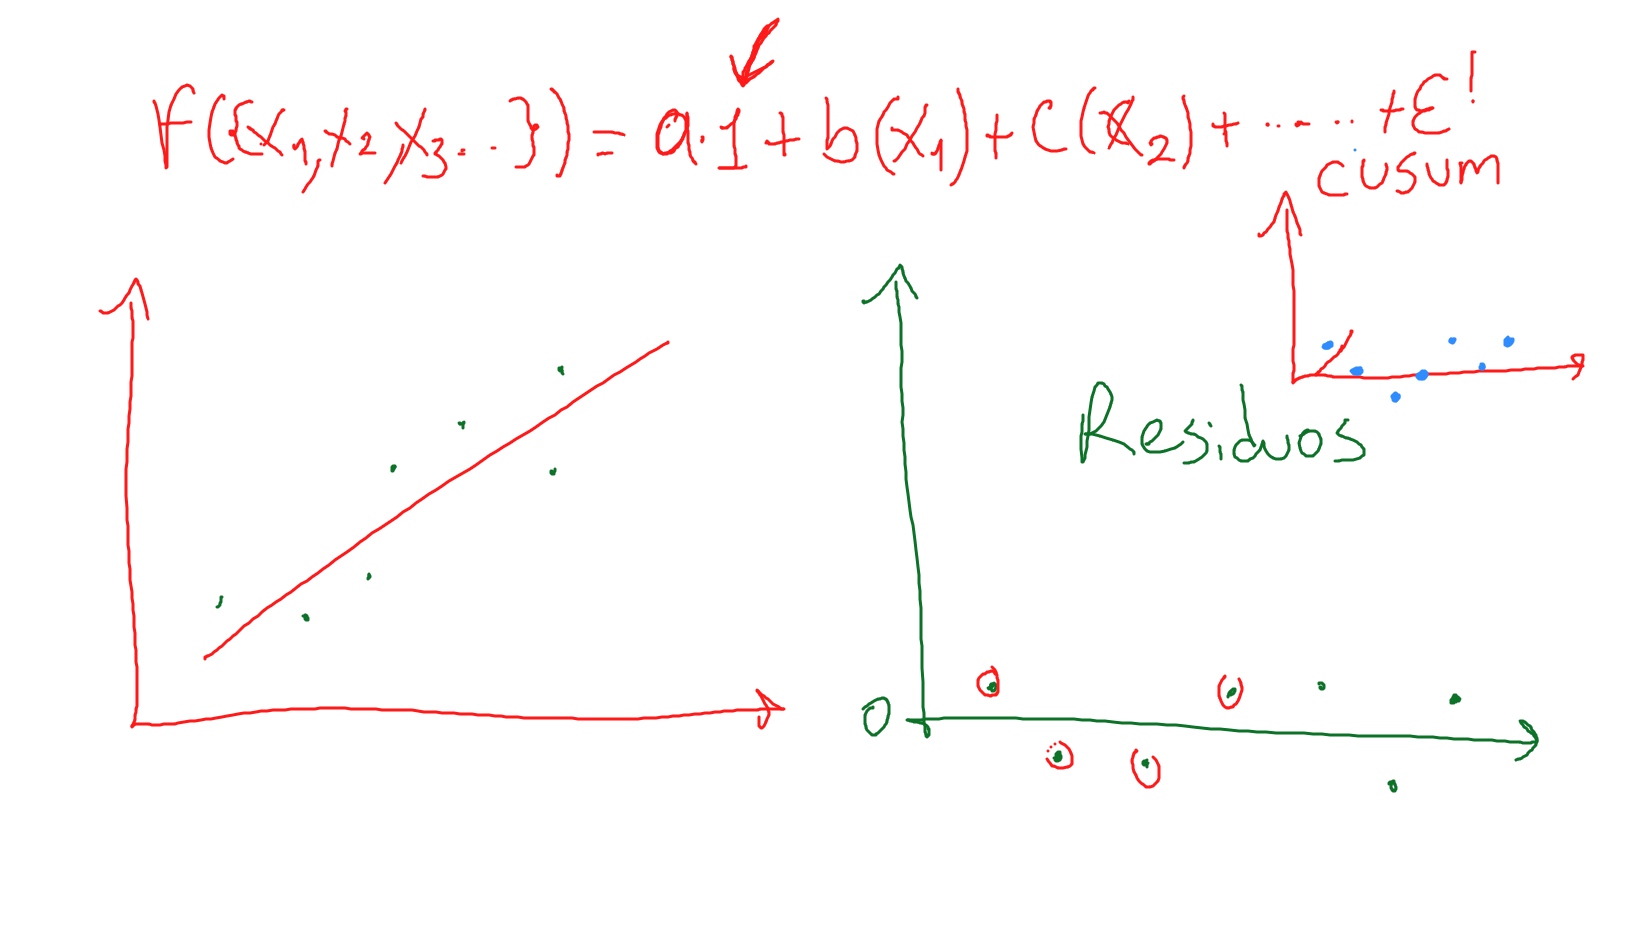 F({x₁,x₂,x₃...}) = a·1 + b(x₁) + c(x₂) + ...... + ε!
CUSUM
Residuos
0